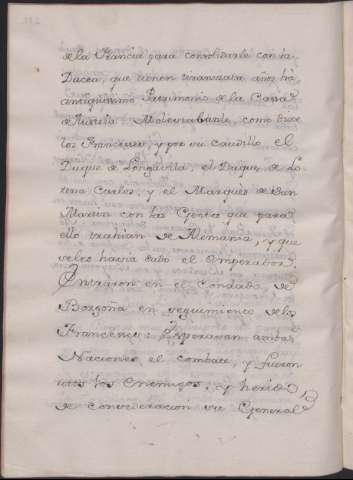 de la Francia para consolidarle con la
Ducea, que tienen tiranizada años há,
antiquisimo Patrimonio de la Casa
de Austria. Molestabanle, como trece
los Franceses, y por su caudillo, el
Duque de Longavila, el Duque de Lo-
rena Carlos, y el Marques de San
Martin con las Gentes que para
ello trahian de Alemania, y que
les havia dado el Emperador.
Entraron en el Condado de
Borgoña en seguimiento de los
Franceses: Esperavan ambas
Naciones el combate, y fueron
rotos los Enemigos, y herido
de consideracion su General